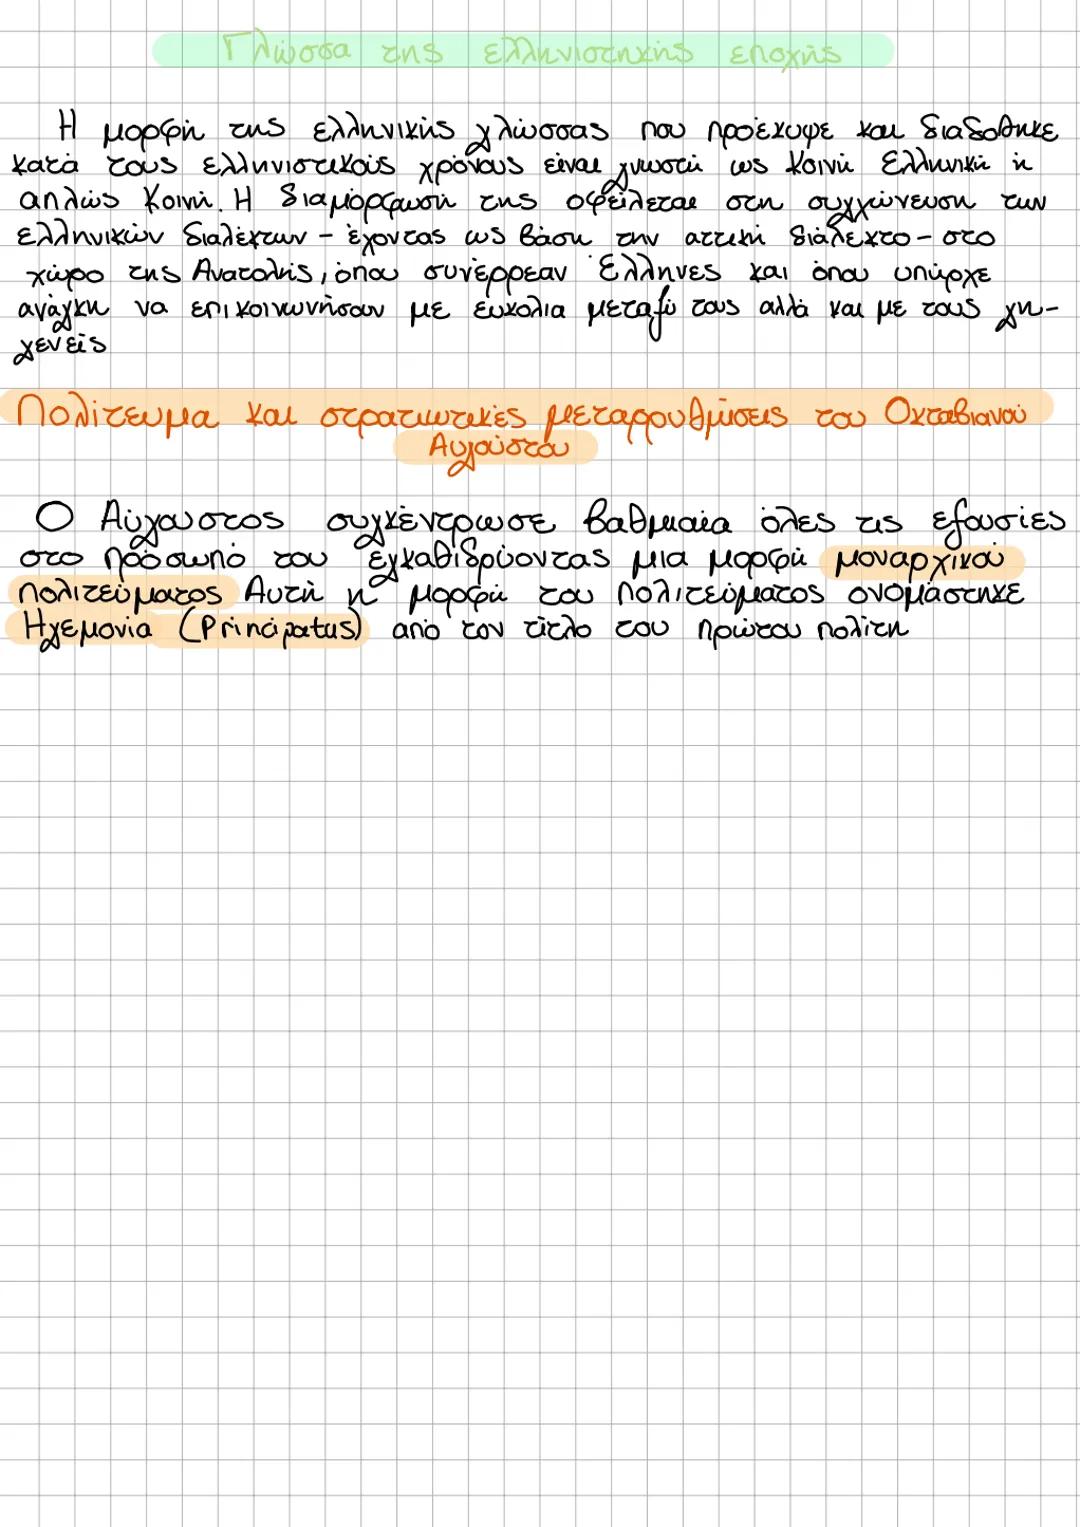 Γλώσσα της ελληνιστηκής εποχής
Η μορφή της ελληνικής γλώσσας που προέκυψε και διαδόθηκε
κατά τους ελληνιστικούς χρόνους είναι γνωστή ως Κοινή Ελληνική ή
απλώς Κοινή. Η διαμόρφωσή της οφείλεται στη συγχώνευση των
ελληνικών διαλέκτων - έχοντας ως βάση την αττική διάλεκτο - στο
χώρο της Ανατολής, όπου συνέρρεαν Έλληνες και όπου υπήρχε
ανάγκη να επικοινωνήσουν με ευκολία μεταξύ τους αλλά και με τους γη-
γενείς
Πολίτευμα και στρατιωτικές μεταρρυθμίσεις του Οκταβιανού
Αυγούστου
Ο Αύγουστος συγκέντρωσε βαθμιαία όλες τις εξουσίες
στο πρόσωπό του εγκαθιδρύοντας μια μορφή μοναρχικού
πολιτεύματος Αυτή η μορφή του πολιτεύματος ονομάστηκε
Ηγεμονία (Principatus) από τον τίτλο του πρώτου πολίτη